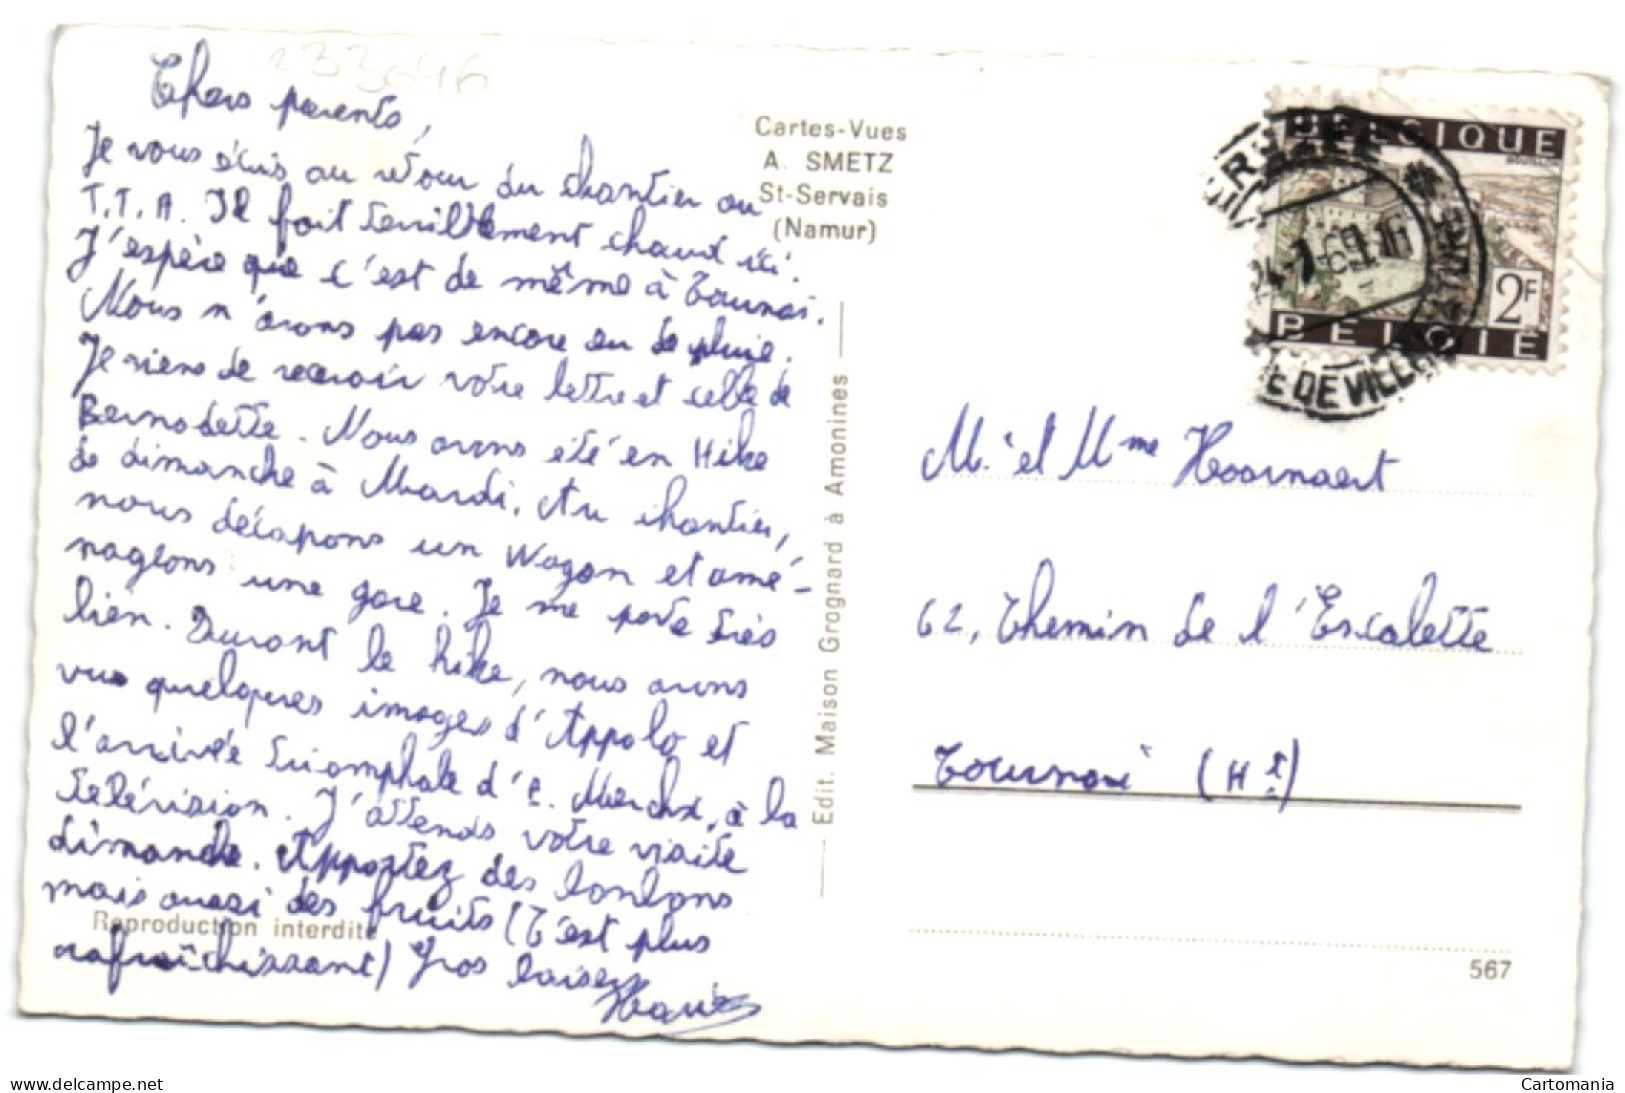 233046
Chers parents,
Je vous écris au retour du chantier au
T.T.A. Il fait terriblement chaud ici.
J'espère que c'est de même à Tournai.
Nous n'avons pas encore eu de pluie.
Je viens de recevoir votre lettre et celle de
Bernadette. Nous avons été en Hike
de dimanche à Mardi. Au chantier,
nous décapons un Wagon et amé-
nageons une gare. Je me porte très
bien. Durant le hike, nous avons
vus quelques images d'Appolo et
l'arrivée triomphale d'E. Merckx, à la
télévision. J'attends votre visite
dimanche. Apportez des bonbons
mais aussi des fruits (C'est plus
rafraîchissant) Gros baisers
Reproduction interdite
Cartes-Vues
A. SMETZ
St-Servais
(Namur)
Edit. Maison Grognard à Amonines
BELGIQUE
2F
BELGIË
24-7-69 16
E DE VILLÉGIATURE
M. et Mme Hoornaert
62, Chemin de l'Escalette
Tournai (Ht)
567
www.delcampe.net
Cartomania